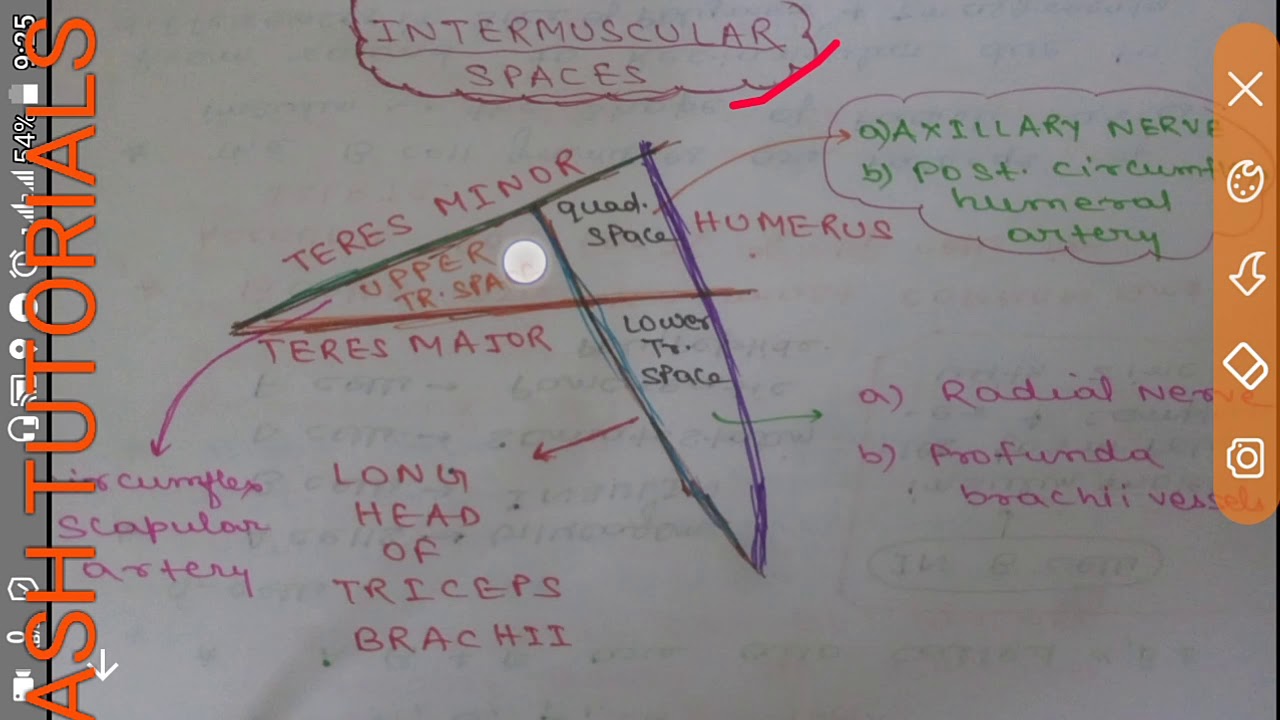 INTERMUSCULAR
SPACES
a) AXILLARY NERVE
b) Post. circumfl
humeral
artery
TERES MINOR
quad.
space
HUMERUS
UPPER
TR. SPA
TERES MAJOR
Lower
Tr.
space
a) Radial Nerve
b) Profunda
brachii vessels
ircumflex
scapular
artery
LONG
HEAD
OF
TRICEPS
BRACHII
9:25
54%
ASH TUTORIALS